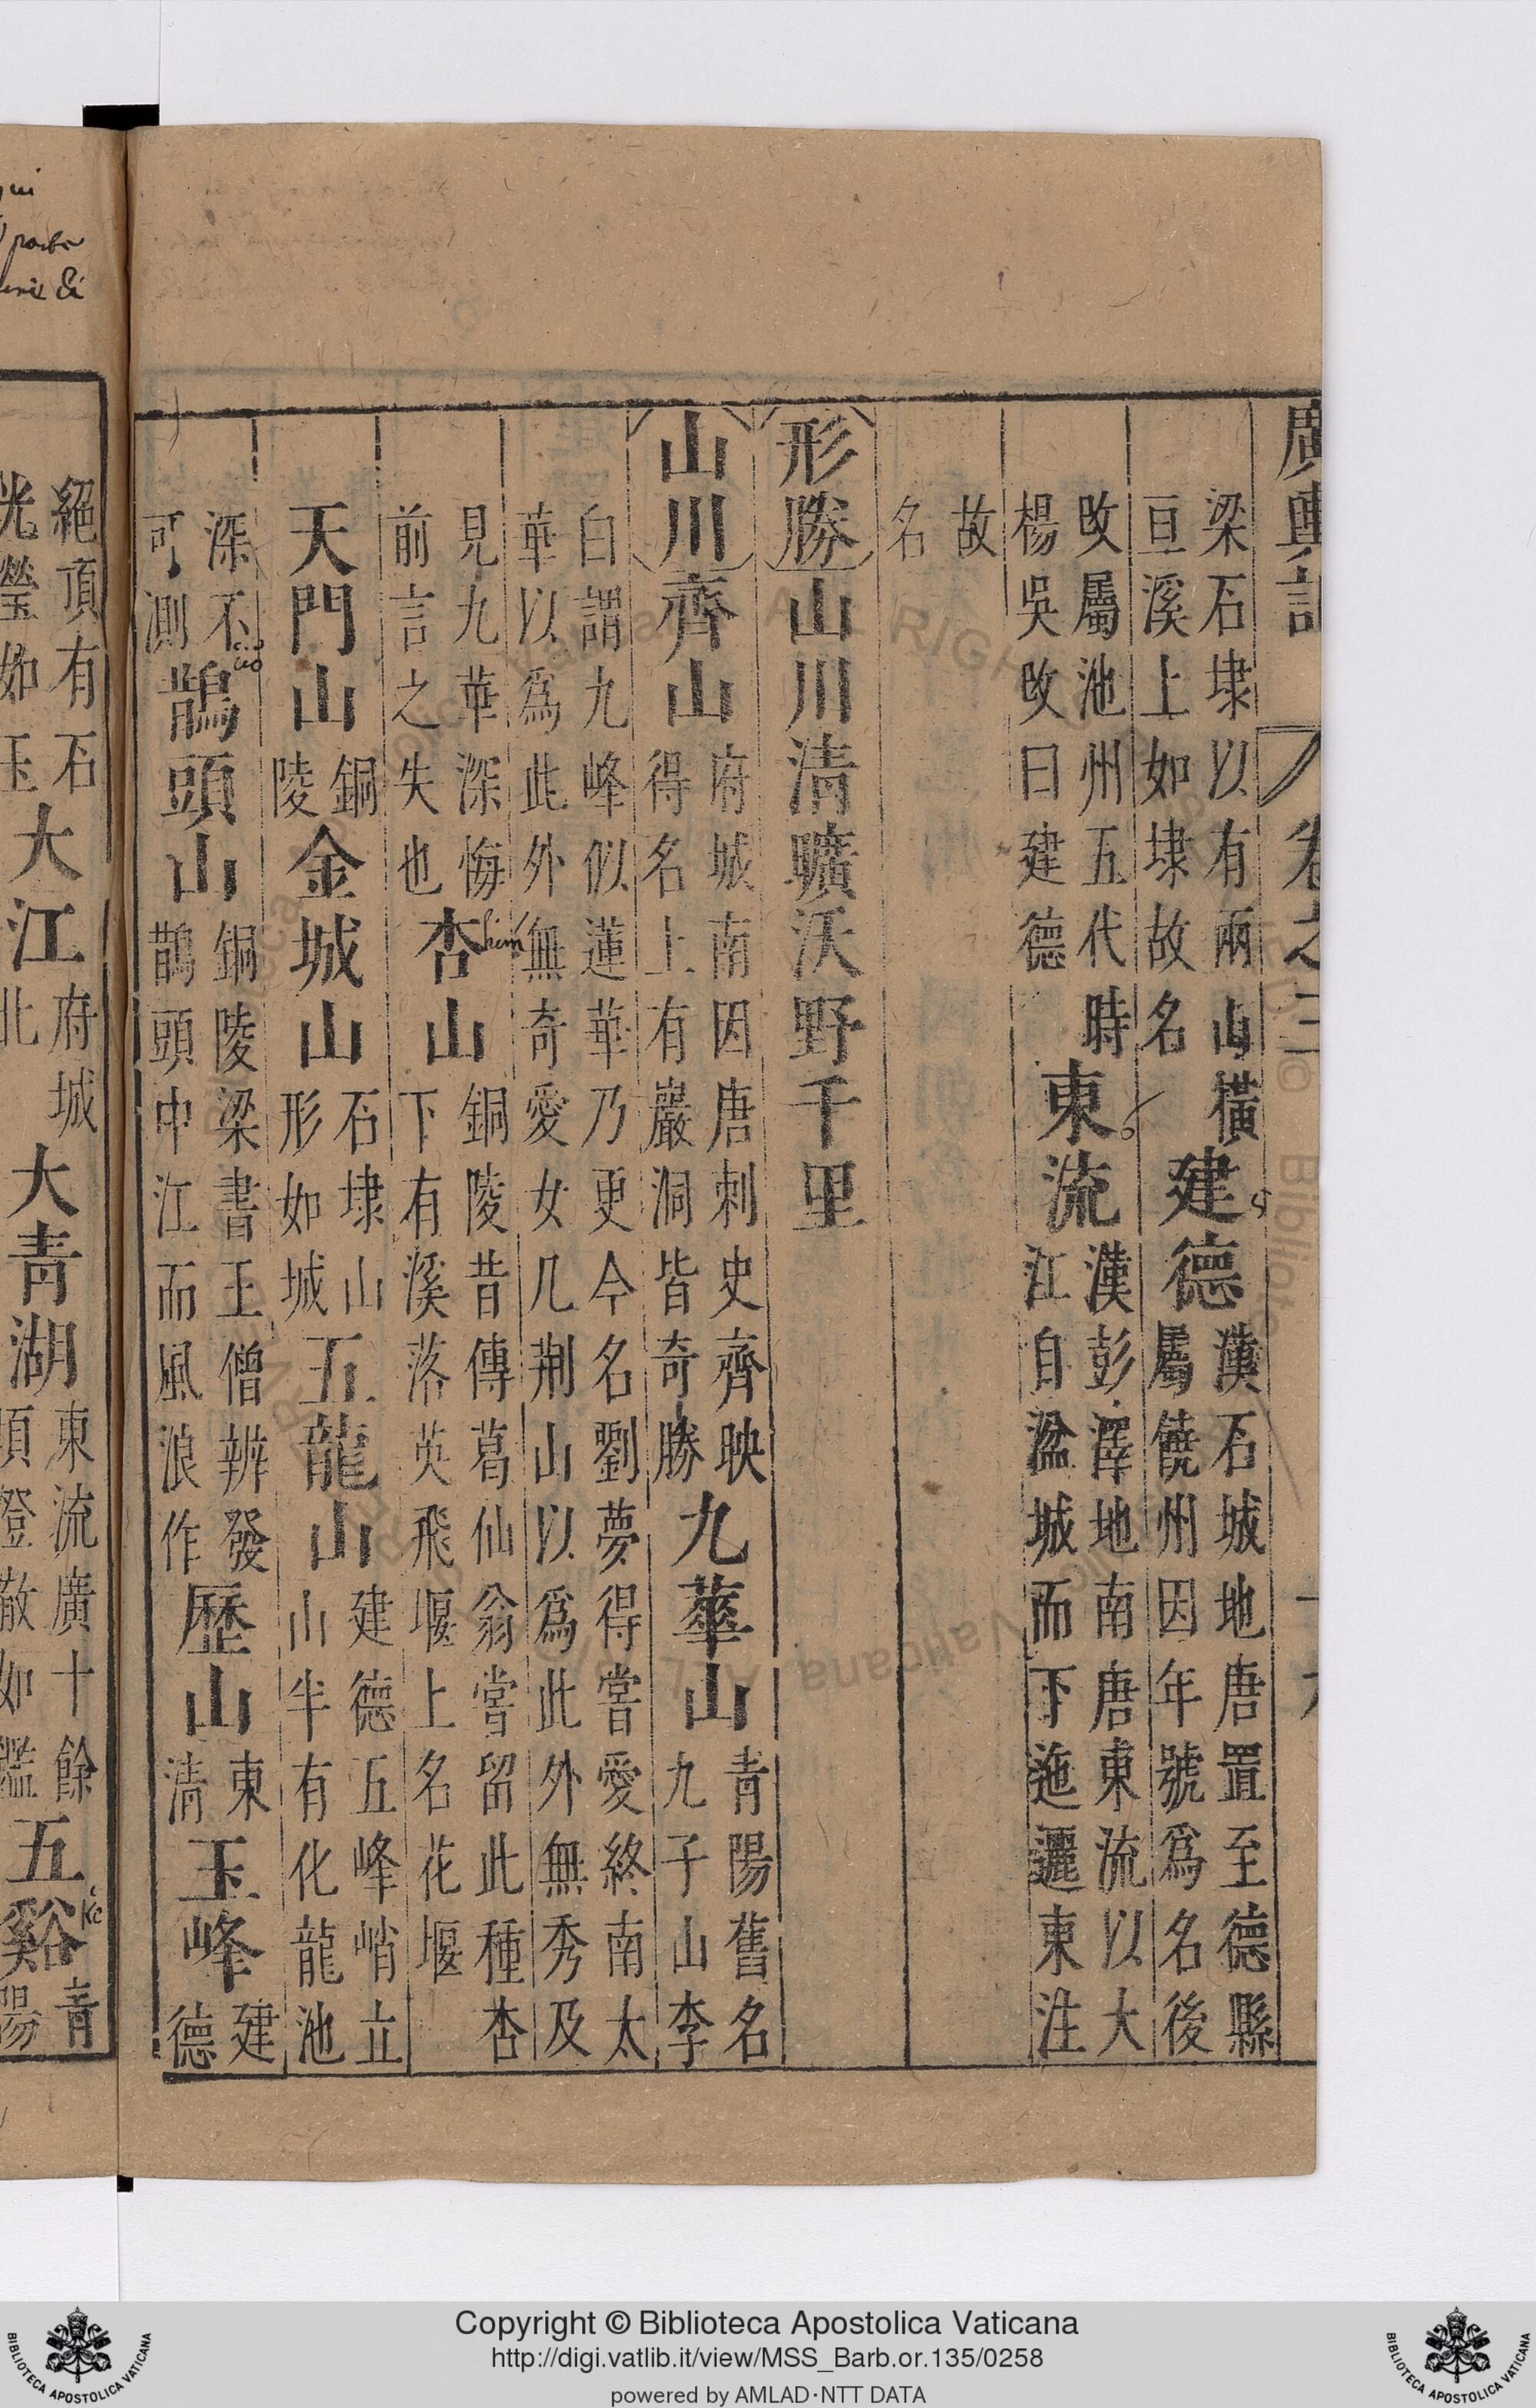 廣輿記 卷之三
梁石埭以有兩山橫亘溪上如埭故名建德漢石城地唐置至德縣屬饒州因年號爲名後
改屬池州五代時楊吳改曰建德東流漢彭澤地南唐東流以大江自湓城而下迤邐東注
故名
形勝山川清曠沃野千里
山川齊山府城南因唐刺史齊映得名上有巖洞皆奇勝九華山青陽舊名九子山李
白謂九峰似蓮華乃更今名劉夢得嘗愛終南太華以爲此外無奇愛女几荆山以爲此外無秀及
見九華深悔前言之失也杏山銅陵昔傳葛仙翁嘗留此種杏下有溪落英飛堰上名花堰
him
天門山銅陵金城山石埭山形如城五龍山建德五峰峭立山半有化龍池
深不可測鵲頭山銅陵梁書王僧辨發鵲頭中江而風浪作歷山東清玉峰建德
絕頂有石光瑩如玉大江府城北大青湖東流廣十餘頃澄澈如鑑五谿青陽
Copyright © Biblioteca Apostolica Vaticana
http://digi.vatlib.it/view/MSS_Barb.or.135/0258
powered by AMLAD·NTT DATA
BIBLIOTECA APOSTOLICA VATICANA
BIBLIOTECA APOSTOLICA VATICANA